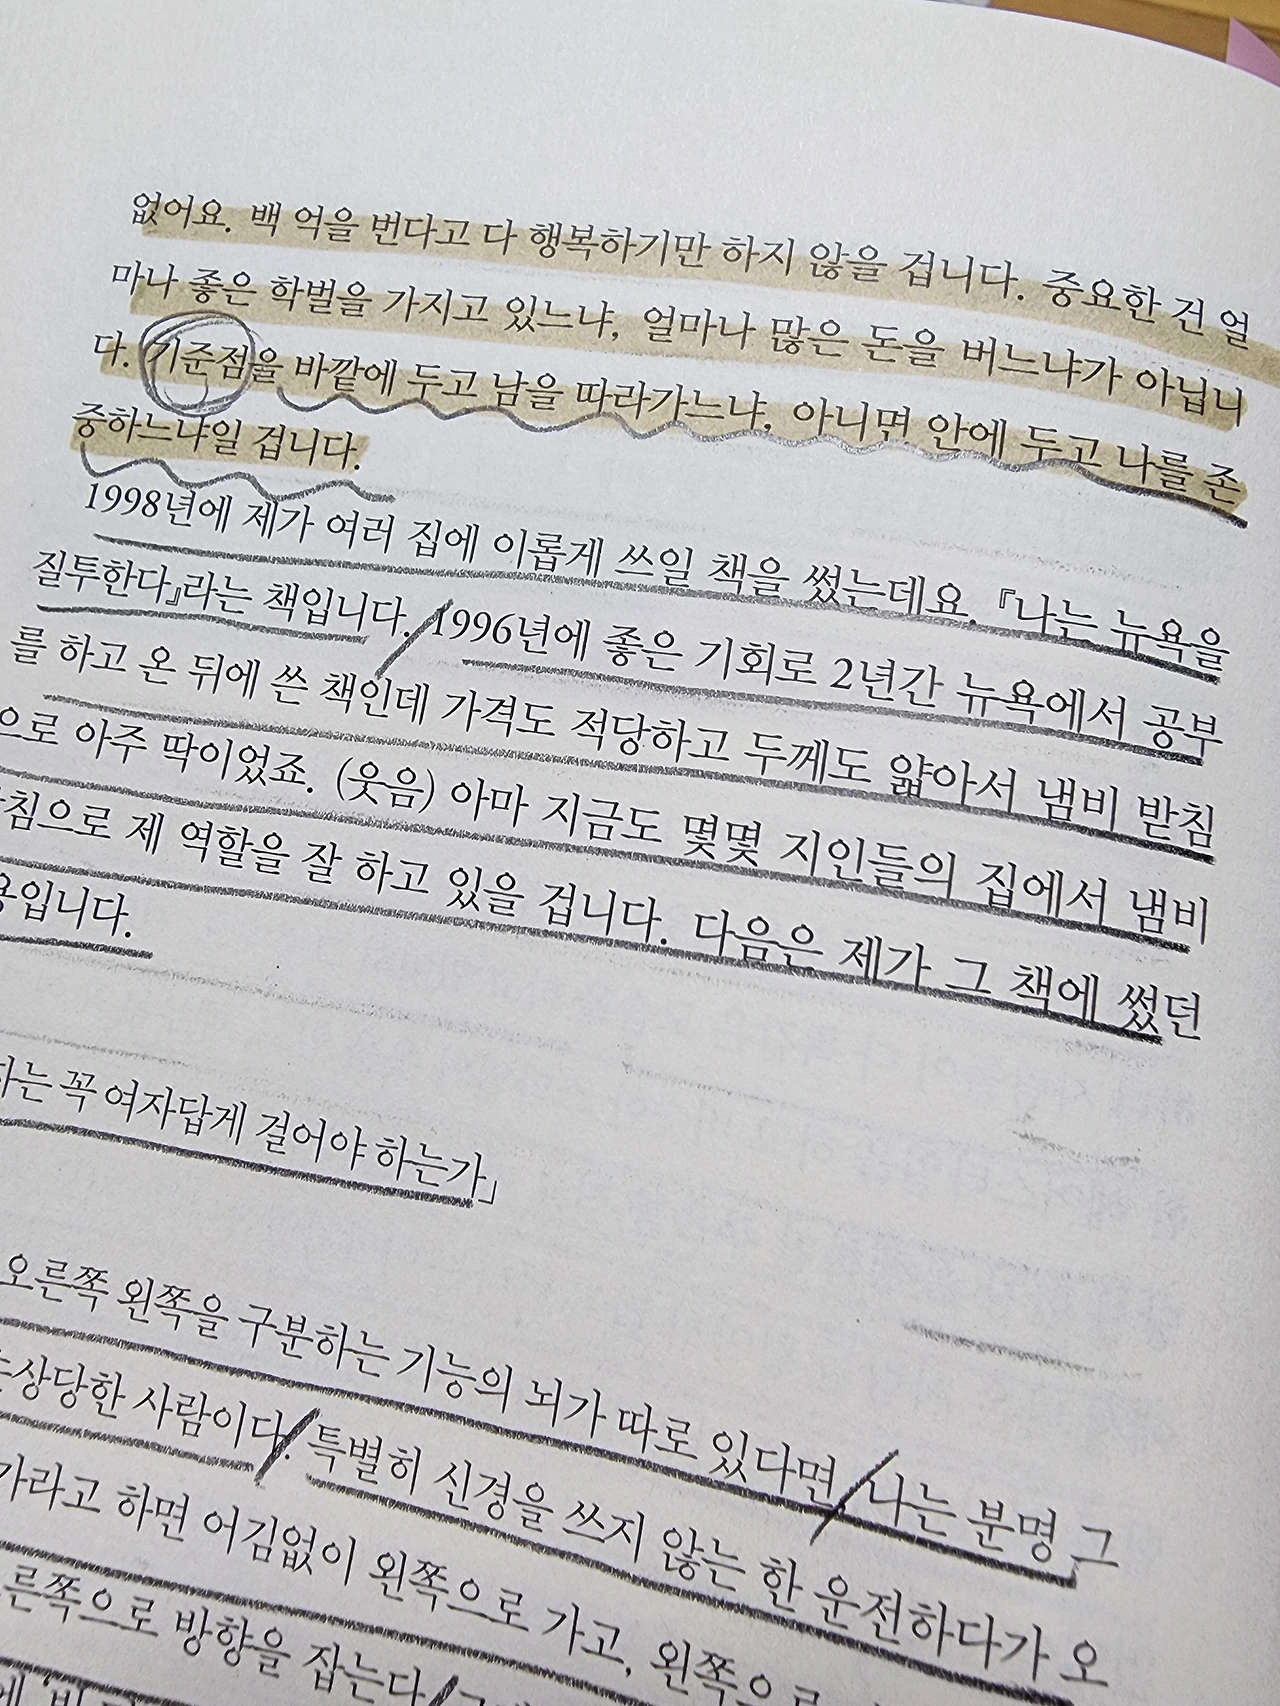 없어요. 백 억을 번다고 다 행복하기만 하지 않을 겁니다. 중요한 건 얼
마나 좋은 학벌을 가지고 있느냐, 얼마나 많은 돈을 버느냐가 아닙니
다. 기준점을 바깥에 두고 남을 따라가느냐, 아니면 안에 두고 나를 존
중하느냐일 겁니다.
1998년에 제가 여러 집에 이롭게 쓰일 책을 썼는데요. 『나는 뉴욕을
질투한다』라는 책입니다. 1996년에 좋은 기회로 2년간 뉴욕에서 공부
를 하고 온 뒤에 쓴 책인데 가격도 적당하고 두께도 얇아서 냄비 받침
으로 아주 딱이었죠. (웃음) 아마 지금도 몇몇 지인들의 집에서 냄비
받침으로 제 역할을 잘 하고 있을 겁니다. 다음은 제가 그 책에 썼던
용입니다.
자는 꼭 여자답게 걸어야 하는가」
오른쪽 왼쪽을 구분하는 기능의 뇌가 따로 있다면, 나는 분명 그
상당한 사람이다. 특별히 신경을 쓰지 않는 한 운전하다가 오
가라고 하면 어김없이 왼쪽으로 가고, 왼쪽으로
른쪽으로 방향을 잡는다.